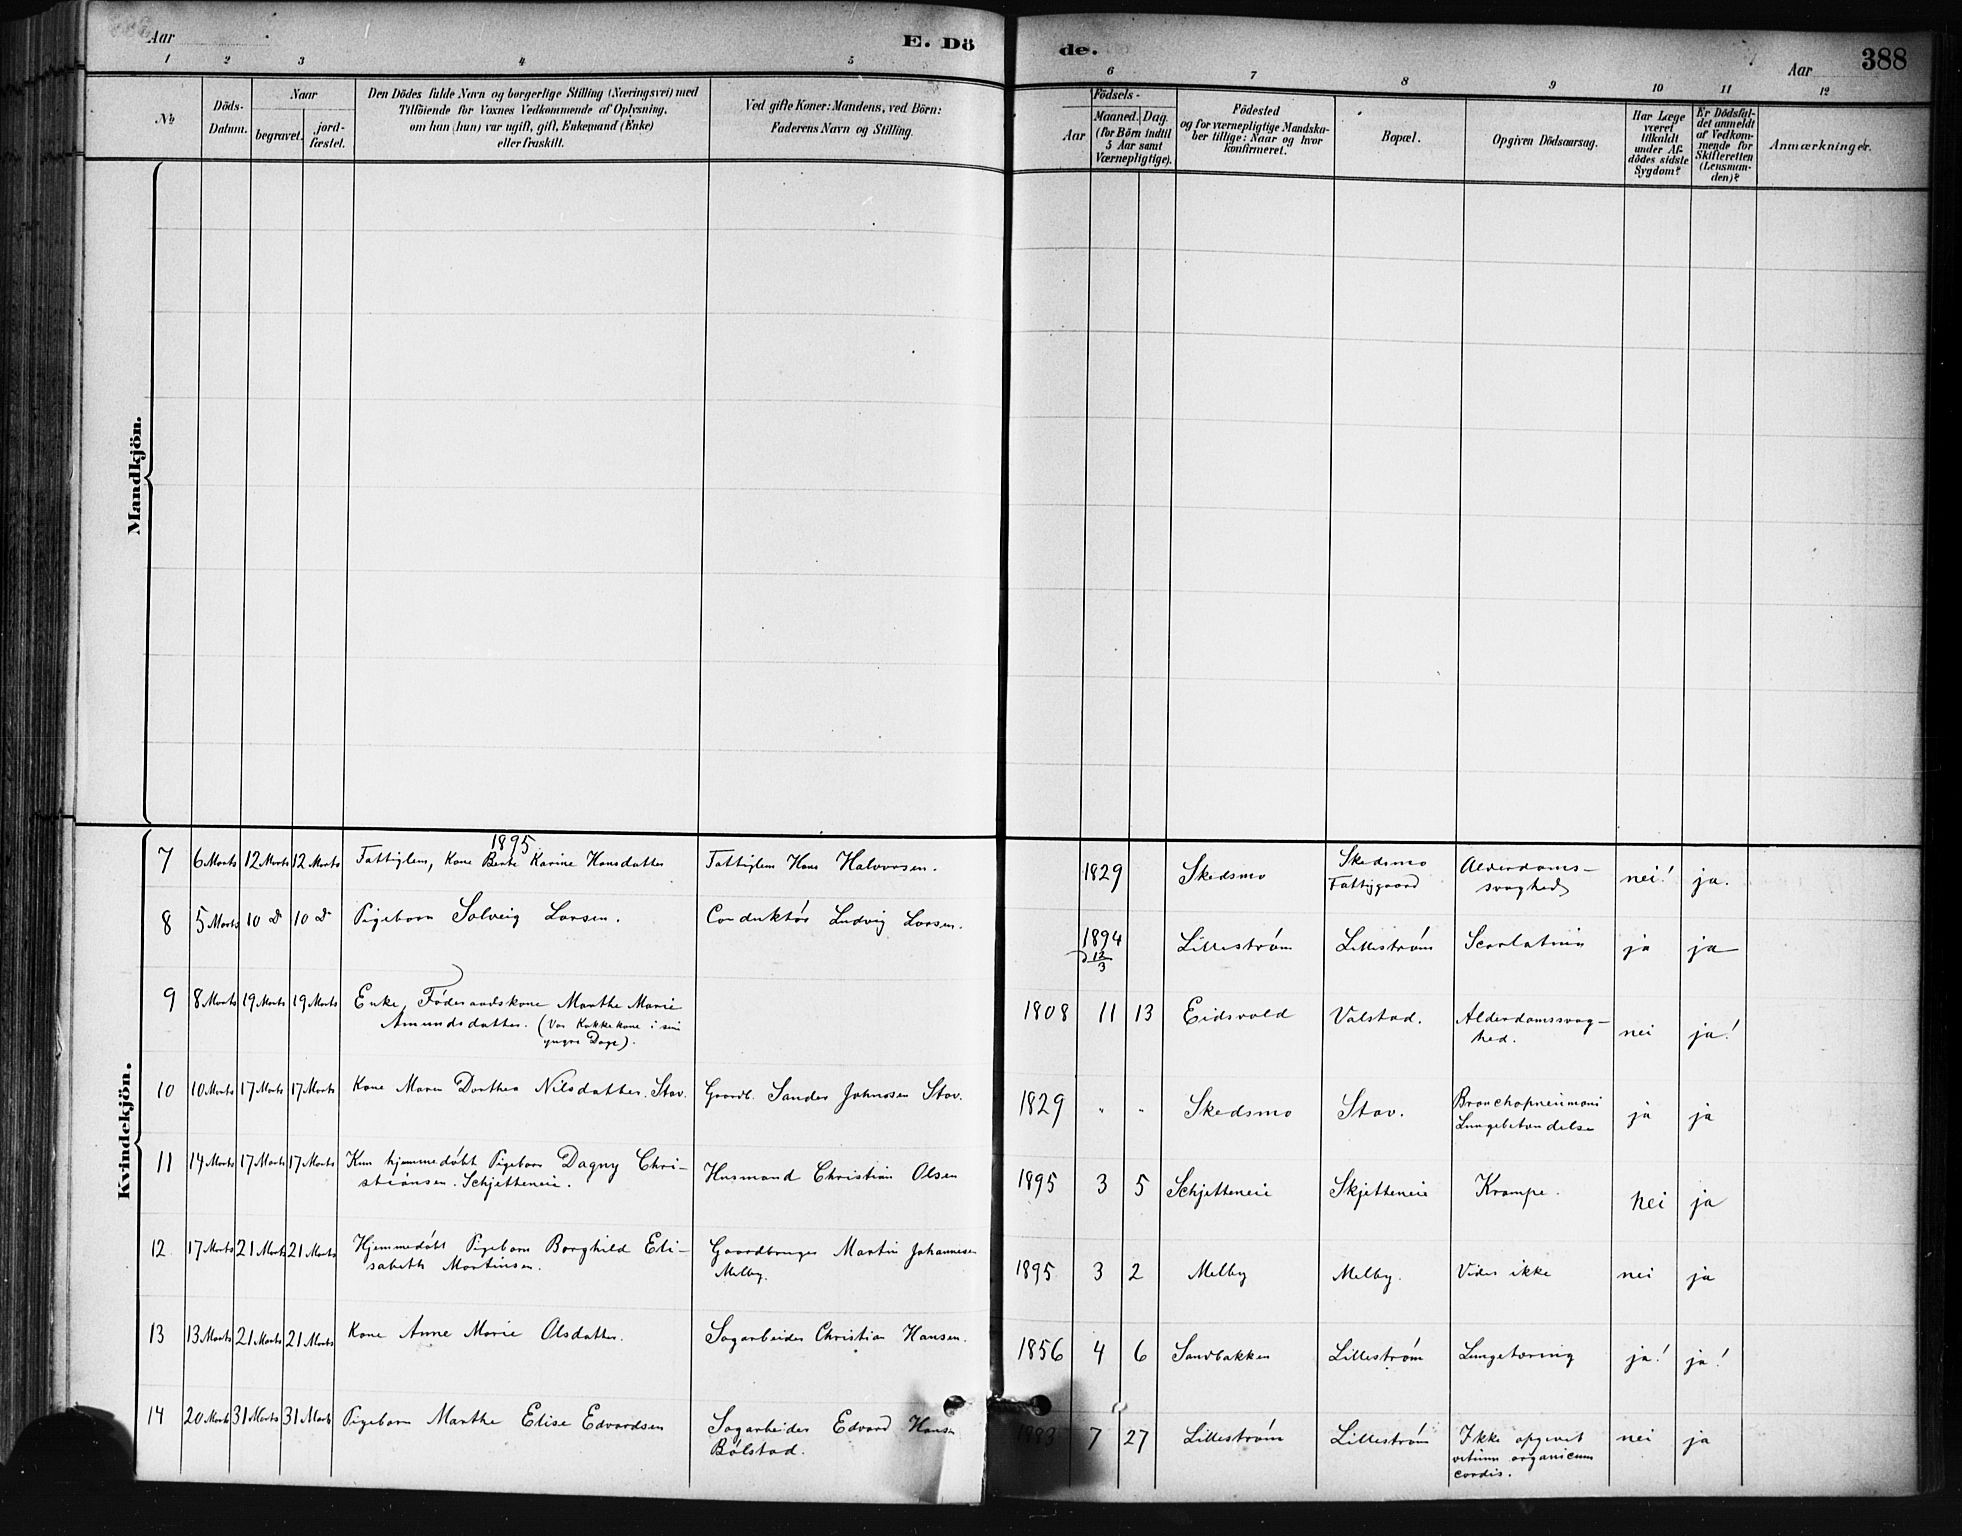 Aar
E. Dö
de.
Aar
388
1 2 3 4 5
6 7 8 9 10 11 12
No
Döds-
Datum.
Naar
begravet.
jord-
fæstet.
Den Dödes fulde Navn og borgerlige Stilling (Næringsvei) med
Tilföiende for Voxnes Vedkommende af Oplysning,
om han (hun) var ugift, gift, Enkemand (Enke)
eller fraskilt.
Ved gifte Koner: Mandens, ved Börn:
Faderens Navn og Stilling.
Födsels-
Aar
Maaned. Dag.
(for Börn indtil
5 Aar samt
Værnepligtige).
Födested
og for værnepligtige Mandska-
ber tillige: Naar og hvor
konfirmeret.
Bopæl.
Opgiven Dödsaarsag.
Har Læge
været
tilkaldt
under Af-
dödes sidste
Sygdom?
Er Dödsfal-
det anmeldt
af Vedkom-
mende for
Skifteretten
(Lensman-
den)?
Anmærkninger.
Mandkjön.
Kvindekjön.
1895
7 6 Marts 12 Marts 12 Marts Fattiglem, Kone Berte Karine Hansdatter Fattiglem Hans Halvorsen. 1829 Skedsmo Skedsmo
Fattiggaard Alderdoms-
svaghed nei! ja.
8 5 Marts 10 D 10 D Pigebarn Solveig Larsen. Conduktör Ludvig Larsen. 1894
12/3 Lilleström Lilleström Scarlatina ja ja
9 8 Marts 19 Marts 19 Marts Enke, Föderaadskone Marthe Marie
Amundsdatter. (Var Kokkekone i sine
yngre Dage). 1808 11 13 Eidsvold Valstad. Alderdomssvag-
hed. nei ja!
10 10 Marts 17 Marts 17 Marts Kone Maren Dorthea Nilsdatter. Stav. Gaardb. Sander Johnssen Stav. 1829 " " Skedsmo Stav. Bronchopneumoni
Lungebetændelse ja ja
11 14 Marts 17 Marts 17 Marts Kun hjemmedöbt Pigebarn Dagny Chri-
stiansen. Schjetteneie. Husmand Christian Olsen 1895 3 5 Schjetteneie Skjetteneie Krampe. nei ja
12 17 Marts 21 Marts 21 Marts Hjemmedöbt Pigebarn Borghild Eli-
sabeth Martinsen. Gaardbruger Martin Johannesen
Melby. 1895 3 2 Melby Melby. Vides ikke nei ja
13 13 Marts 21 Marts 21 Marts Kone Anne Marie Olsdatter. Sagarbeider Christian Hansen. 1856 4 6 Sandbakken Lilleström Lungetæring ja! ja!
14 20 Marts 31 Marts 31 Marts Pigebarn Marthe Elise Edvardsen Sagarbeider Edvard Hansen
Bölstad. 1883 7 27 Lilleström Lilleström Ikke opgivet
vitium organicum
cordis. nei ja